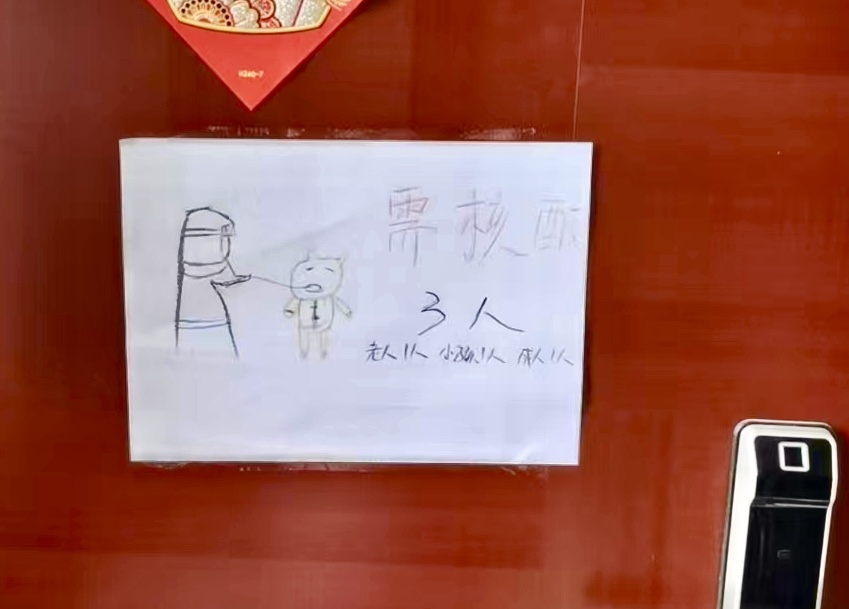 需核酸
3人
老人1人 小孩1人 成人1人